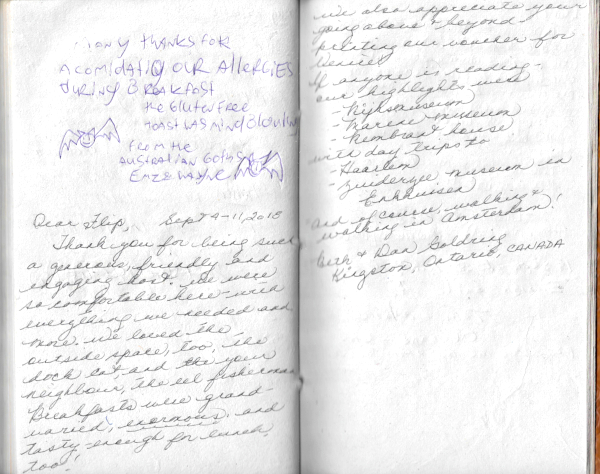 Many thanks for
acomidatig our allergies
during Breakfast
the gluten free
toast was mind blowing
from the
Australian Goths
Emz & Wayne
Dear Flip, Sept 4-11, 2018
Thank you for being such
a generous, friendly and
engaging host. We were
so comfortable here with
everything we needed and
more. We loved the
outside space, too, the
dock cat, and the your
neighbour, the eel fisherman.
Breakfasts were grand -
varied, enormous, and
tasty - enough for lunch
too!
We also appreciate your
going above & beyond -
printing our voucher for
Venice!
If anyone is reading -
our highlights were
- Rijksmuseum
- Marine museum
- Rembrandt house
with day trips to
- Haarlem
- Zuiderzee museum in
Enkhuisen
and of course, walking &
walking in Amsterdam!
& Dan Goldring
Kingston, Ontario, CANADA